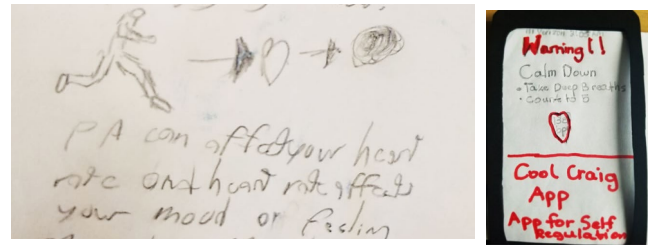 PA can affect your heart
rate and heart rate affects
your mood or feelin
Warning!!
Calm Down
• Take Deep Breaths
• Count to 5
Cool Craig
App
App for Self
Regulation